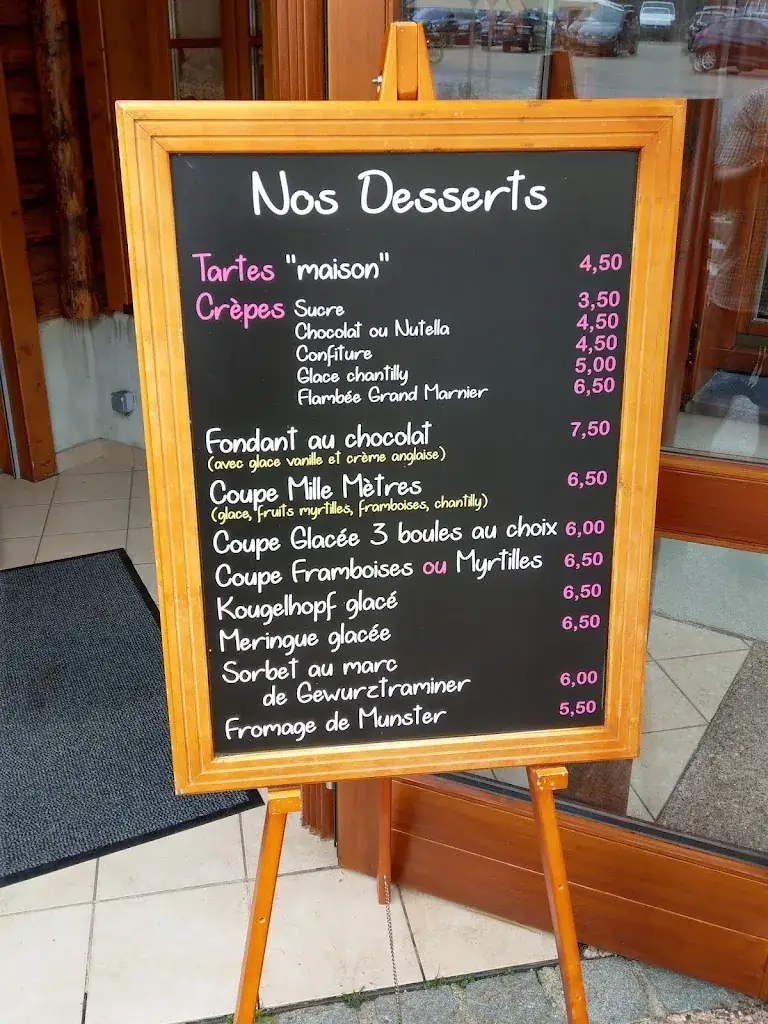 Nos Desserts
Tartes "maison" 4,50
Crèpes Sucre 3,50
Chocolat ou Nutella 4,50
Confiture 4,50
Glace chantilly 5,00
Flambée Grand Marnier 6,50
Fondant au chocolat 7,50
(avec glace vanille et crème anglaise)
Coupe Mille Mètres 6,50
(glace, fruits myrtilles, framboises, chantilly)
Coupe Glacée 3 boules au choix 6,00
Coupe Framboises ou Myrtilles 6,50
Kougelhopf glacé 6,50
Meringue glacée 6,50
Sorbet au marc
de Gewurztraminer 6,00
Fromage de Munster 5,50